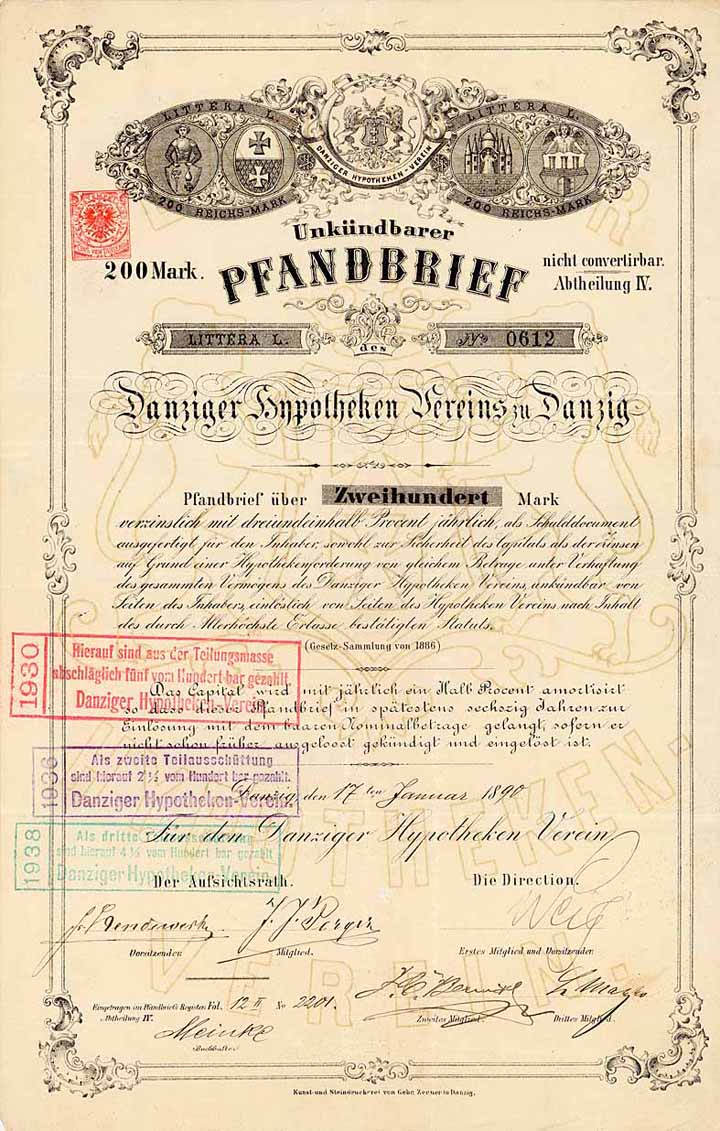 LITTERA L.
200 REICHS-MARK
DANZIGER HYPOTHEKEN-VEREIN
LITTERA L.
200 REICHS-MARK
Unkündbarer
200 Mark.
PFANDBRIEF
nicht convertirbar.
Abtheilung IV.
LITTERA L.
des
No 0612
Danziger Hypotheken Vereins zu Danzig
Pfandbrief über Zweihundert Mark
verzinslich mit dreiundeinhalb Procent jährlich, als Schulddocument
ausgefertigt für den Inhaber, sowohl zur Sicherheit des Capitals als der Zinsen
auf Grund einer Hypothekenforderung von gleichem Betrage unter Verhaftung
des gesammten Vermögens des Danziger Hypotheken Vereins, unkündbar von
Seiten des Inhabers, einlöslich von Seiten des Hypotheken Vereins nach Inhalt
des durch Allerhöchste Erlasse bestätigten Statuts.
(Gesetz-Sammlung von 1886)
1930
Hierauf sind aus der Teilungsmasse
abschläglich fünf vom Hundert bar gezahlt.
Danziger Hypotheken-Verein
Das Capital wird mit jährlich ein Halb Procent amortisirt
so dass dieser Pfandbrief in spätestens sechszig Jahren zur
Einlösung mit dem baaren Nominalbetrage gelangt, sofern er
nicht schon früher ausgeloost gekündigt und eingelöst ist.
1936
Als zweite Teilausschüttung
sind hierauf 2½ vom Hundert bar gezahlt.
Danziger Hypotheken-Verein.
Danzig, den 17ten Januar 1890
1938
Als dritte Teilausschüttung
sind hierauf 4½ vom Hundert bar gezahlt
Danziger Hypotheken-Verein
Für den Danziger Hypotheken Verein
Der Aufsichtsrath.
Die Direction.
Vorsitzender
Mitglied.
Erstes Mitglied und Vorsitzender
Eingetragen im Pfandbriefs Register Fol. 12 II No 2201.
Abtheilung IV.
Zweites Mitglied.
Drittes Mitglied.
Meinke
Buchhalter
Kunst-und Steindruckerei von Gebr. Zeuner in Danzig.